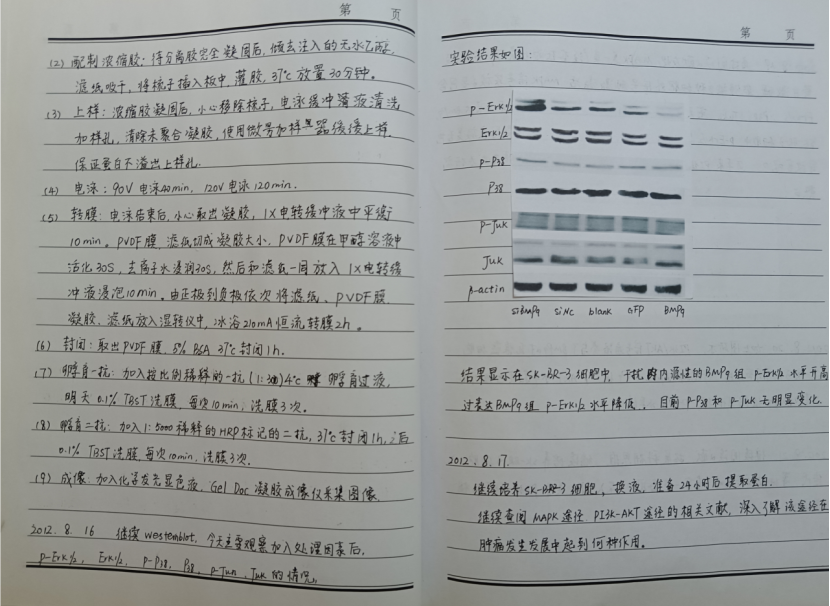 第 页
(2) 配制浓缩胶：待分离胶完全凝固后，倾去注入的无水乙醇，
滤纸吸干，将梳子插入板中，灌胶，37℃放置30分钟。
(3) 上样：浓缩胶凝固后，小心移除梳子，电泳缓冲液清洗
加样孔，清除未聚合凝胶，使用微量加样器缓缓上样，
保证蛋白不溢出上样孔.
(4) 电泳：90V 电泳40min，120V 电泳120min.
(5) 转膜：电泳结束后，小心取出凝胶，1X电转缓冲液中平衡
10min。PVDF膜、滤纸切成凝胶大小，PVDF膜在甲醇溶液中
活化30S，去离子水浸润30s，然后和滤纸一同放入1X电转缓
冲液浸泡10min。由正极到负极依次将滤纸、PVDF膜
凝胶、滤纸放入湿转仪中，冰浴210mA恒流转膜2h。
(6) 封闭：取出PVDF膜，5% BSA 37℃封闭1h.
(7) 孵育一抗：加入按比例稀释的一抗 4℃ 孵育过夜，
明天0.1% TBST洗膜，每次10min，洗膜3次。
(8) 孵育二抗：加入1:5000稀释的HRP标记的二抗，37℃封闭1h，后
0.1% TBST洗膜 每次10min，洗膜3次.
(9) 成像：加入化学发光显色液，Gel Doc 凝胶成像仪采集图像.
2012. 8. 16 继续Westernblot，今天主要观察加入处理因素后，
p-Erk1/2，Erk1/2，p-P38，P38，p-Jun，Juk的情况。
第 页
实验结果如图：
p-Erk1/2
Erk1/2
p-P38
P38
p-Juk
Juk
β-actin
siBMP9 siNC blank GFP BMP9
结果显示在SK-BR-3细胞中，干扰内源性的BMP9组 p-Erk1/2水平升高
过表达BMP9组 p-Erk1/2水平降低，目前P-P38和p-Juk无明显变化.
2012. 8. 17.
继续培养SK-BR-3细胞，换液，准备24小时后提取蛋白.
继续查阅MAPK途径 PI3K-AKT途径的相关文献，深入了解该途径在
肿瘤发生发展中起到何种作用。